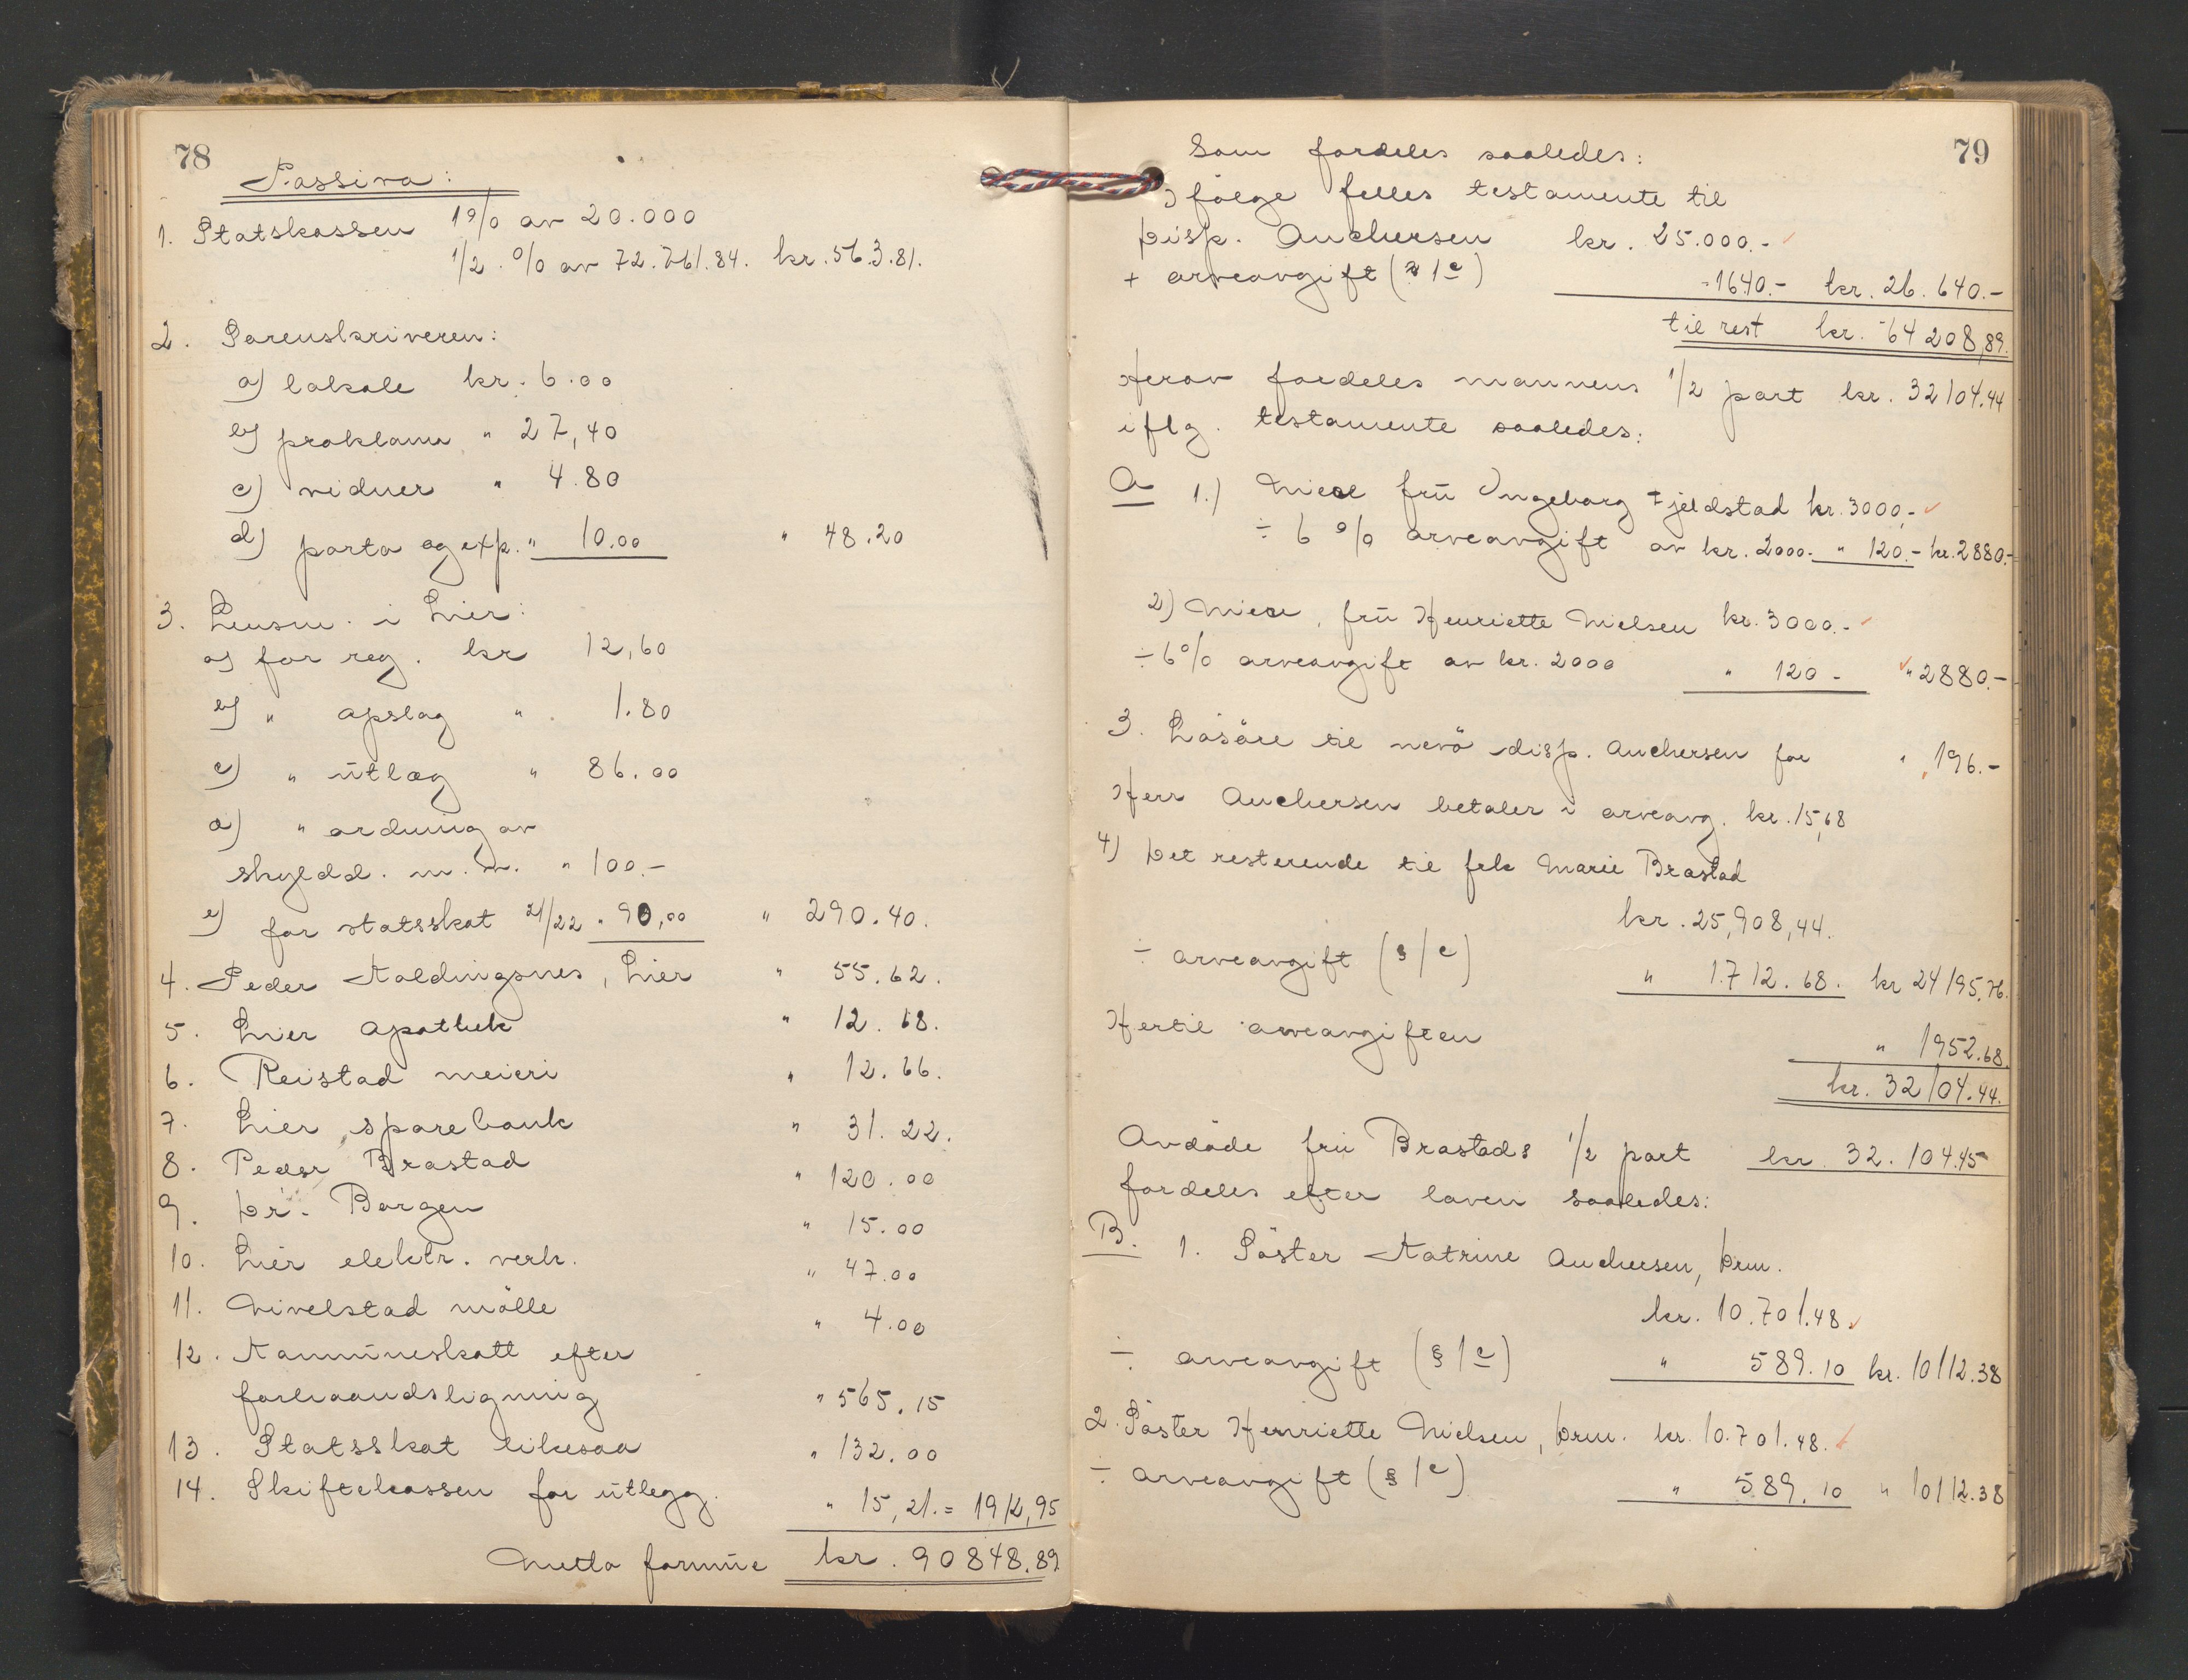 78
Passiva:
1. Statskassen 1% av 20.000
1/2 . % av 72.761.84. kr. 563.81.
2. Sorenskriveren:
a) lokale kr. 6.00
b) proklama " 27,40
c) vidner " 4.80
d) porto og exp. " 10.00 " 48.20
3. Lensm. i Lier:
a) for reg. kr 12,60
b) " opslag " 1.80
c) " utlæg " 86.00
d) " ordning av
skyldd. m.m. " 100.-
e) for statsskat 21/22 " 90,00 " 290.40.
4. Peder Koldingsnes, Lier " 55.62.
5. Lier apothek " 12.68.
6. Reistad meieri " 12.66.
7. Lier sparebank " 31.22.
8. Peder Brastad " 120.00
9. Dr. Borgen " 15.00
10. Lier elektr. verk. " 47.00
11. Nivelstad mölle " 4.00
12. Kommuneskatt efter
forhaandsligning " 565.15
13. Statsskat likesaa " 132.00
14. Skiftekassen for utlegg. " 15,21. = 1912,95
Netto formue kr. 90848.89.
79
Som fordeles saaledes:
Ifölge felles testamente til
Disp. Anchersen kr. 25.000.-
+ arveavgift (§ 1 c) - 1640.- kr. 26.640.-
til rest kr. 64208,89.
Herav fordeles mannens 1/2 part kr. 32104.44
iflg. testamente saaledes:
A 1.) Niese frü Ingeborg Fjeldstad kr. 3000,-
÷ 6% arveavgift av kr. 2000.- " 120.- kr. 2880.-
2) Niese, frü Henriette Nielsen kr. 3000.-
÷ 6% arveavgift av kr. 2000 " 120 - " 2880.-
3. Lösöre til nevö disp. Anchersen for " 196.-
Herr Anchersen betaler i arveavg. kr. 15,68
4) Det resterende til frk Marie Brastad
kr. 25,908,44.
÷ arveavgift (§ 1 c) " 1712.68. kr 24195.76.
Hertil arveavgiften " 1952.68.
kr. 32104.44.
Avdöde frü Brastads 1/2 part kr. 32.104.45
fordeles efter loven saaledes:
B. 1. Söster Katrine Anchersen, Drm.
kr. 10.701.48.
÷ arveavgift (§ 1 c) " 589.10 kr. 10112.38
2. Söster Henriette Nielsen, Drm. kr. 10.701.48.
÷ arveavgift (§ 1 c) " 589.10 " 10112.38